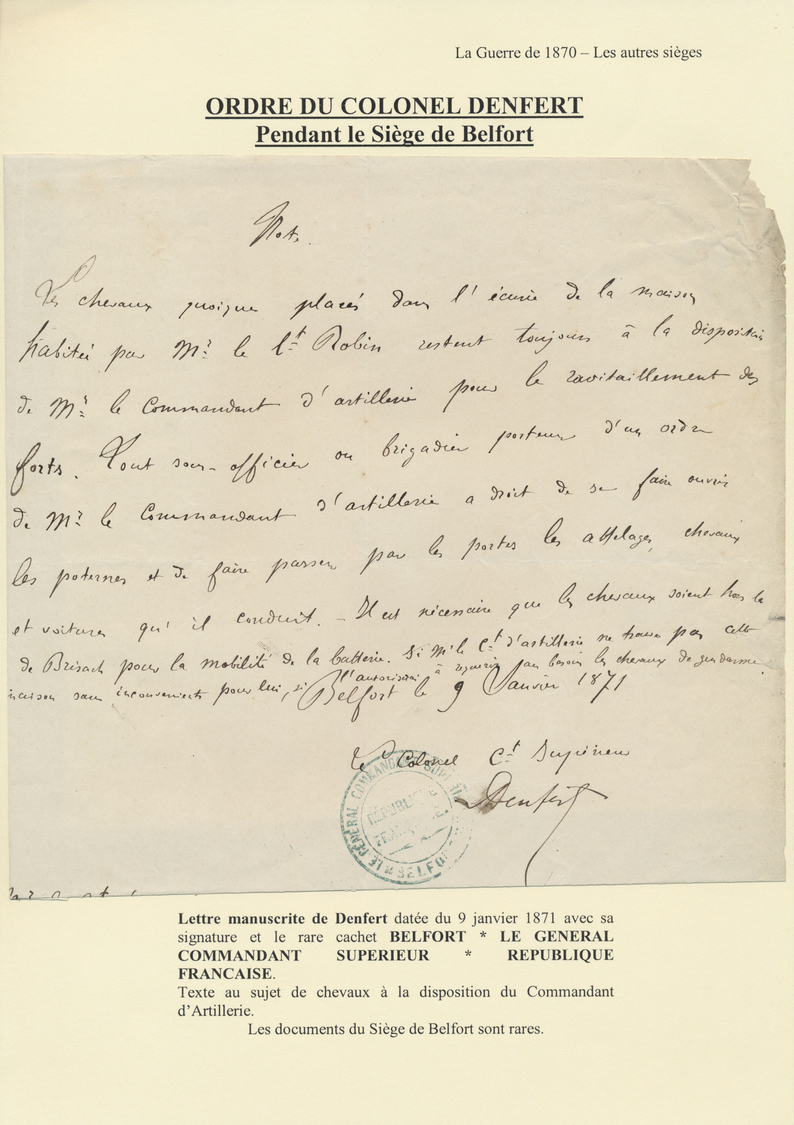 La Guerre de 1870 – Les autres sièges
ORDRE DU COLONEL DENFERT
Pendant le Siège de Belfort
Note.
Les chevaux quoique placés dans l'écurie de la maison
habitée par Mr le Lt Robin restent toujours à la disposition
de Mr le Commandant d'artillerie pour le ravitaillement des
forts. Tout sous-officier ou brigadier porteur d'un ordre
de Mr le Commandant d'artillerie a droit de se faire ouvrir
les poternes et de faire passer par les portes les attelages, chevaux
et voitures qu'il conduit. – Il est nécessaire que les chevaux soient hors la
de Brisach pour la mobilité de la batterie. Si Mr le Ct d'artillerie ne trouve pas cette
l'autorisan à requérir au besoin les chevaux de gendarmerie.
liaison sans inconvenients pour lui,
Belfort le 9 Janvier 1871
le Colonel Ct Supérieur
Denfert
LE GÉNÉRAL COMMANDANT SUPÉRIEUR
RÉPUBLIQUE
FRANÇAISE
BELFORT
Lettre manuscrite de Denfert datée du 9 janvier 1871 avec sa
signature et le rare cachet BELFORT * LE GENERAL
COMMANDANT SUPERIEUR * REPUBLIQUE
FRANCAISE.
Texte au sujet de chevaux à la disposition du Commandant
d'Artillerie.
Les documents du Siège de Belfort sont rares.